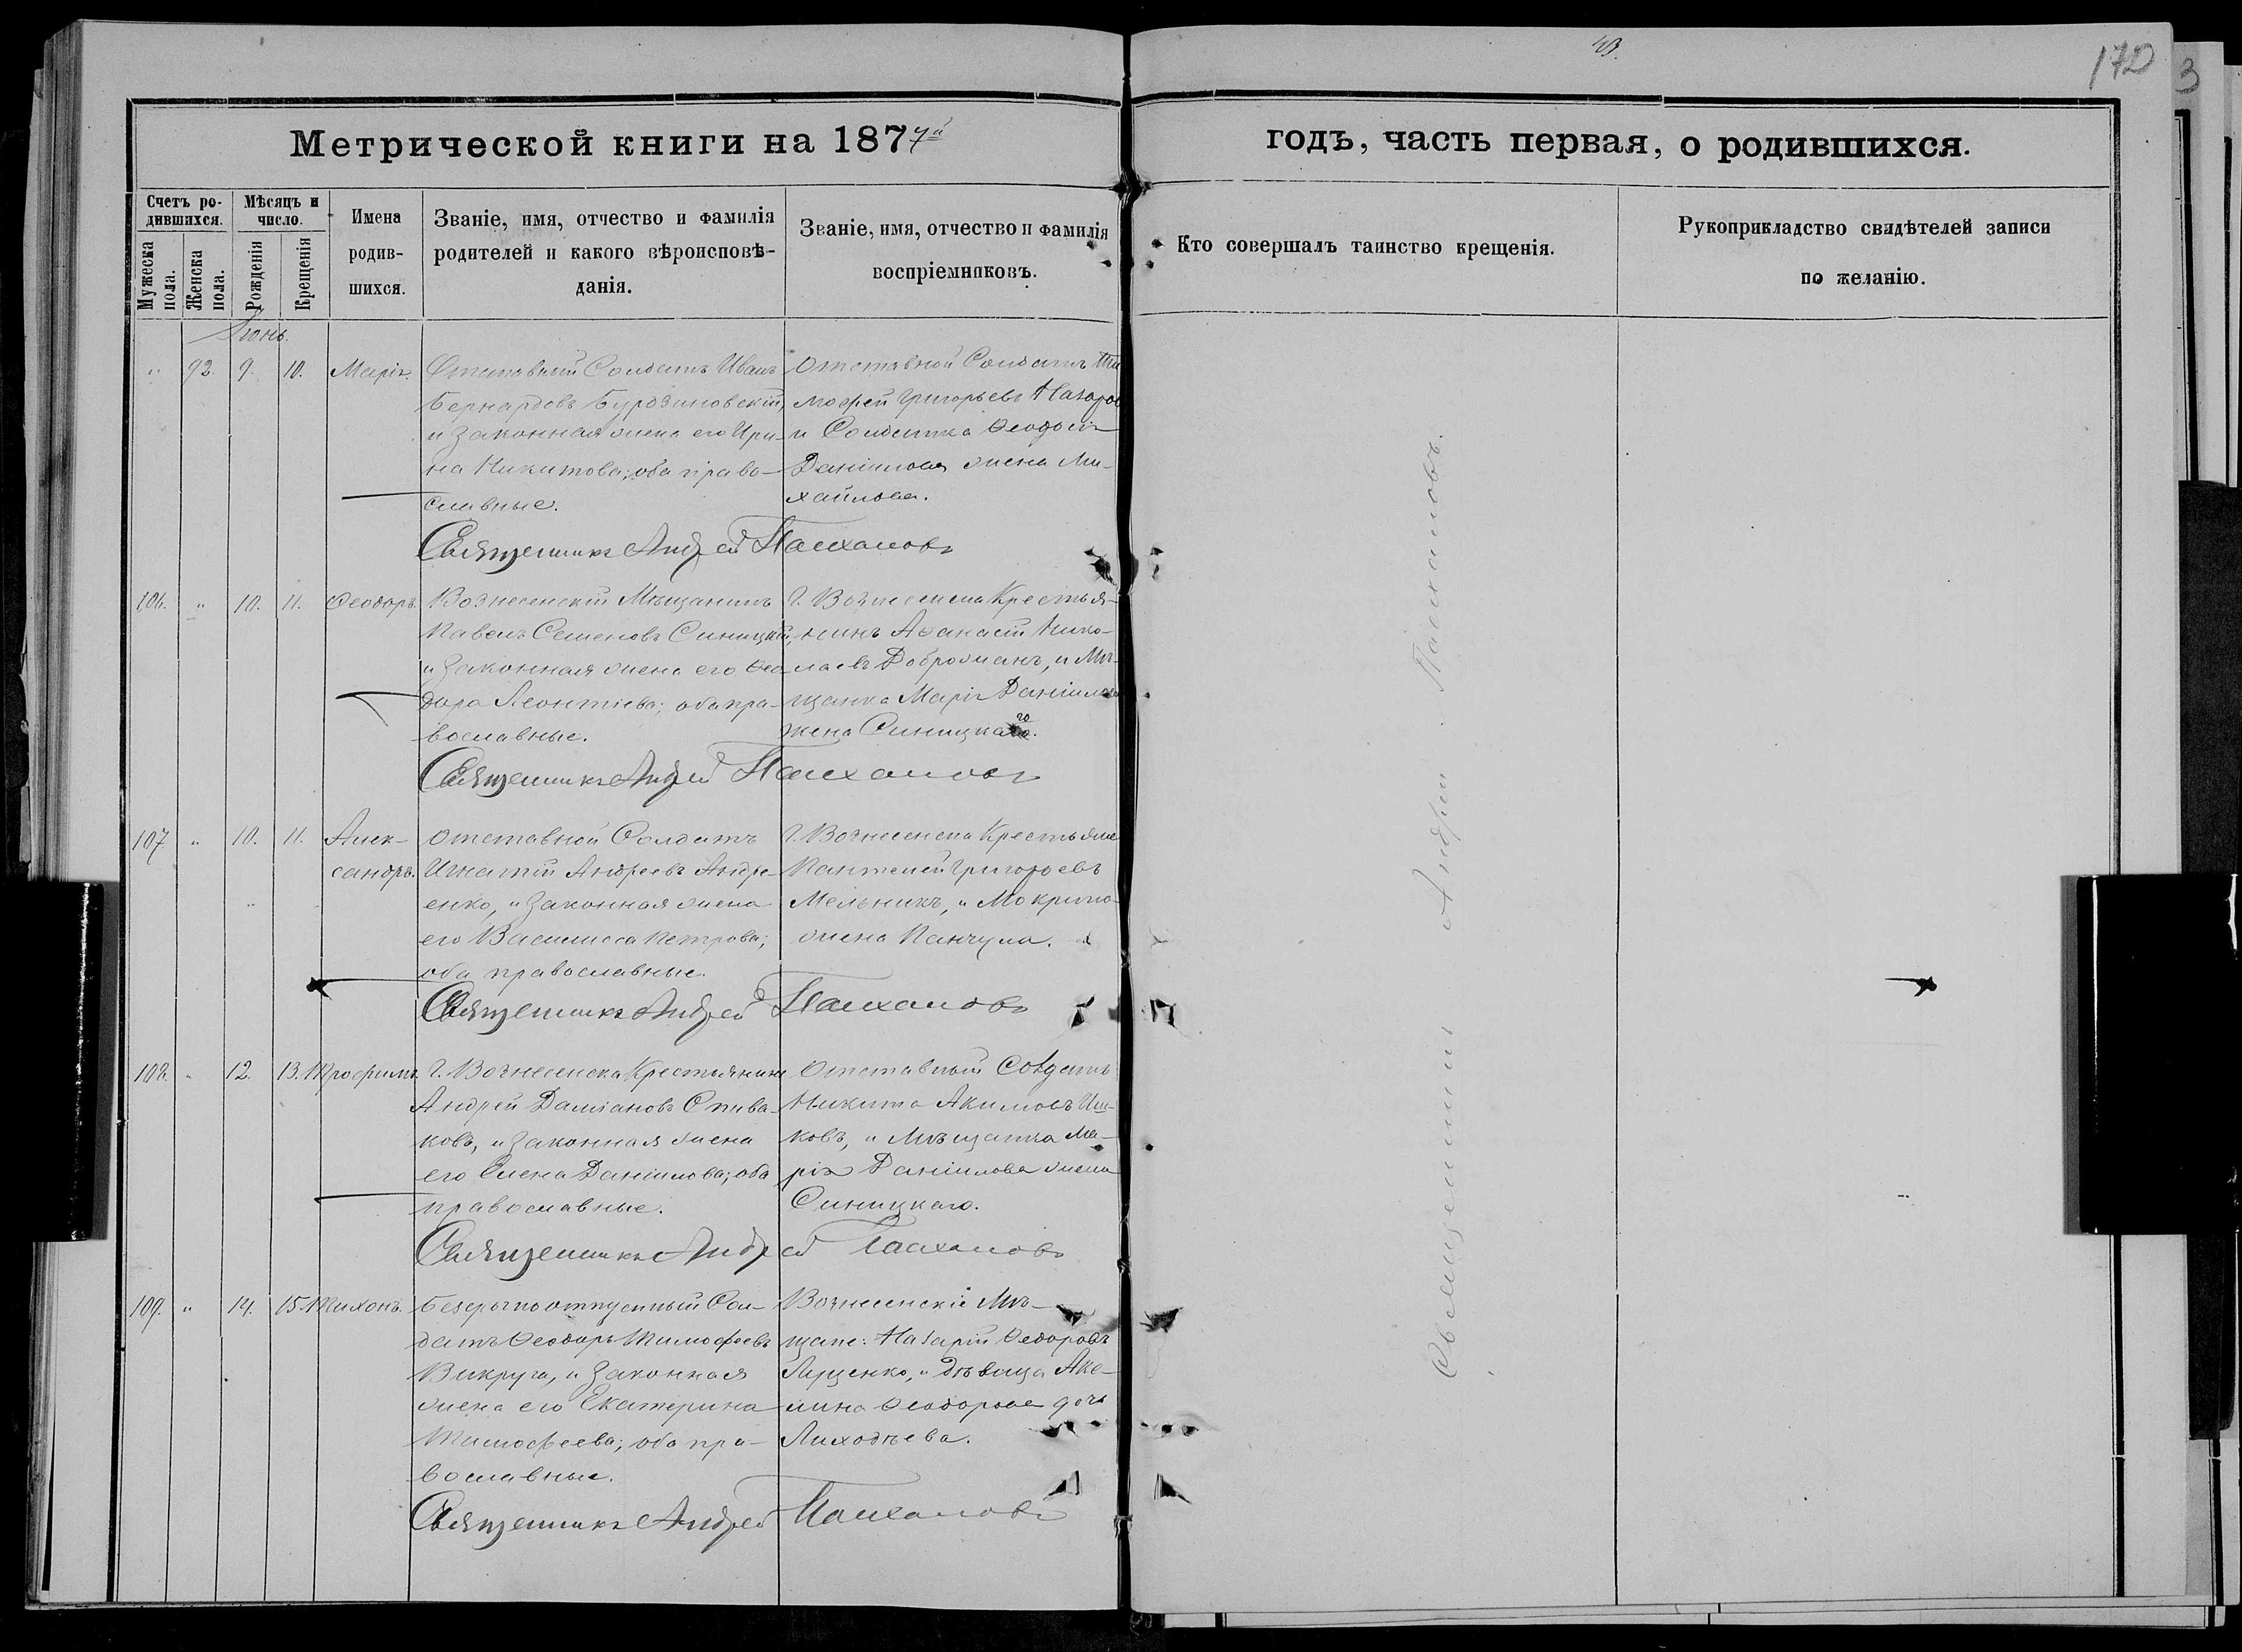 43.
172
3
Метрической книги на 1877й
годъ, часть первая, о родившихся.
Счетъ ро-
дившихся.
Мужеска
пола.
Женска
пола.
Мѣсяцъ и
число.
Рожденія
Крещенія
Имена
родив-
шихся.
Званіе, имя, отчество и фамилія
родителей и какого вѣроисповѣ-
данія.
Званіе, имя, отчество и фамилія
воспріемниковъ.
Кто совершалъ таинство крещенія.
Рукоприкладство свидѣтелей записи
по желанію.
Іюнь.
" 92. 9. 10. Марія.
Отставный Солдатъ Иванъ
Бернардовъ Бурдзиновскій,
и законная жена его Ири-
на Никитова; оба право-
славные.
Отставной Солдатъ Ти
мофей Григорьевъ Назаров
и Солдатка Ѳеодосія
Даніилова жена Ми-
хайлова.
Священникъ Андрей
106. " 10. 11. Ѳеодоръ.
Вознесенскій Мѣщанинъ
Павелъ Семеновъ Синицкій,
и законная жена его Ѳео
дора Леонтіева; оба пра-
вославные.
Г. Вознесенска Крестья-
нинъ Аѳанасій Нико-
лаевъ Доброжанъ, и Мѣ-
щанка Марія Даніилова
жена Синицкаго.
Священникъ Андрей
107 " 10. 11. Алек-
сандръ.
Отставной Солдатъ
Игнатій Андреевъ Андре-
енко, и законная жена
его Василисса Петрова;
оба православные.
Г. Вознесенска Крестьяне
Пантелей Григорьевъ
Мельникъ, и Мокрина
жена Панчула.
Священникъ Андрей
108. " 12. 13. Трофимъ.
Г. Вознесенска Крестьянинъ
Андрей Даміановъ Спива-
ковъ, и законная жена
его Елена Даніилова; оба
православные.
Отставный Солдатъ
Никита Акимовъ
ковъ, и Мѣщанка Ма-
рія Даніилова жена
Синицкаго.
Священникъ Андрей
109. " 14. 15. Тихонъ.
Безсрочноотпускный Сол-
датъ Ѳеодоръ Тимофеевъ
Викруга, и законная
жена его Екатерина
Тимофеева; оба пра-
вославные.
Вознесенскіе Мѣ-
щане: Назарій Ѳедоровъ
Луценко, и дѣвица Аке-
лина Ѳеодорова дочь
Лиходѣева.
Священникъ Андрей
Священникъ Андрей